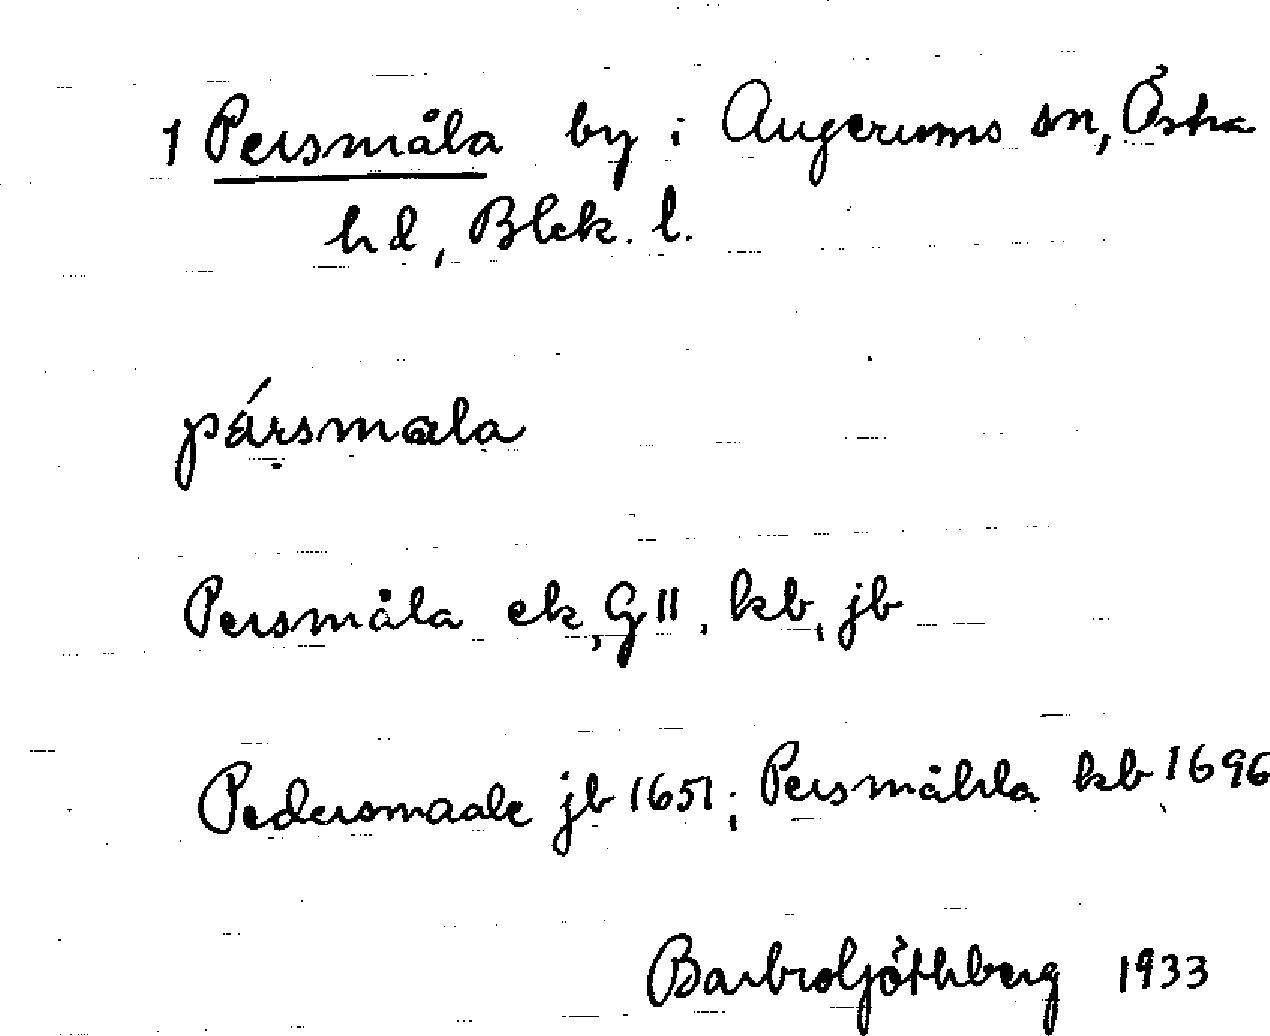 1 Persmåla by i Augerums sn, Östra
hd, Blek. l.
pærsmala
Persmåla ek, GII, kb, jb
Pedersmaale jb 1651; Persmåhla kb 1696
Barbro Göthberg 1933